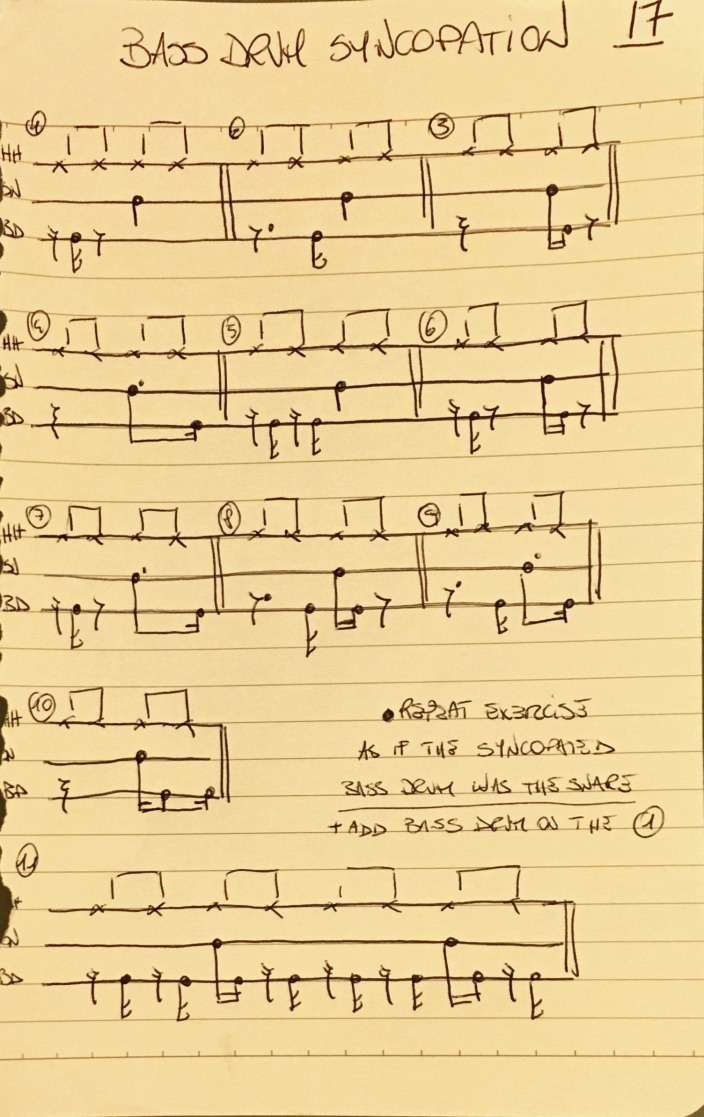 BASS DRUM SYNCOPATION 17
1 2 3
HH
SN
BD
4 5 6
HH
SN
BD
7 8 9
HH
SN
BD
10
HH
N
BD
• REPEAT EXERCISE
AS IF THE SYNCOPATED
BASS DRUM WAS THE SNARE
+ ADD BASS DRUM ON THE 1
11
N
BD